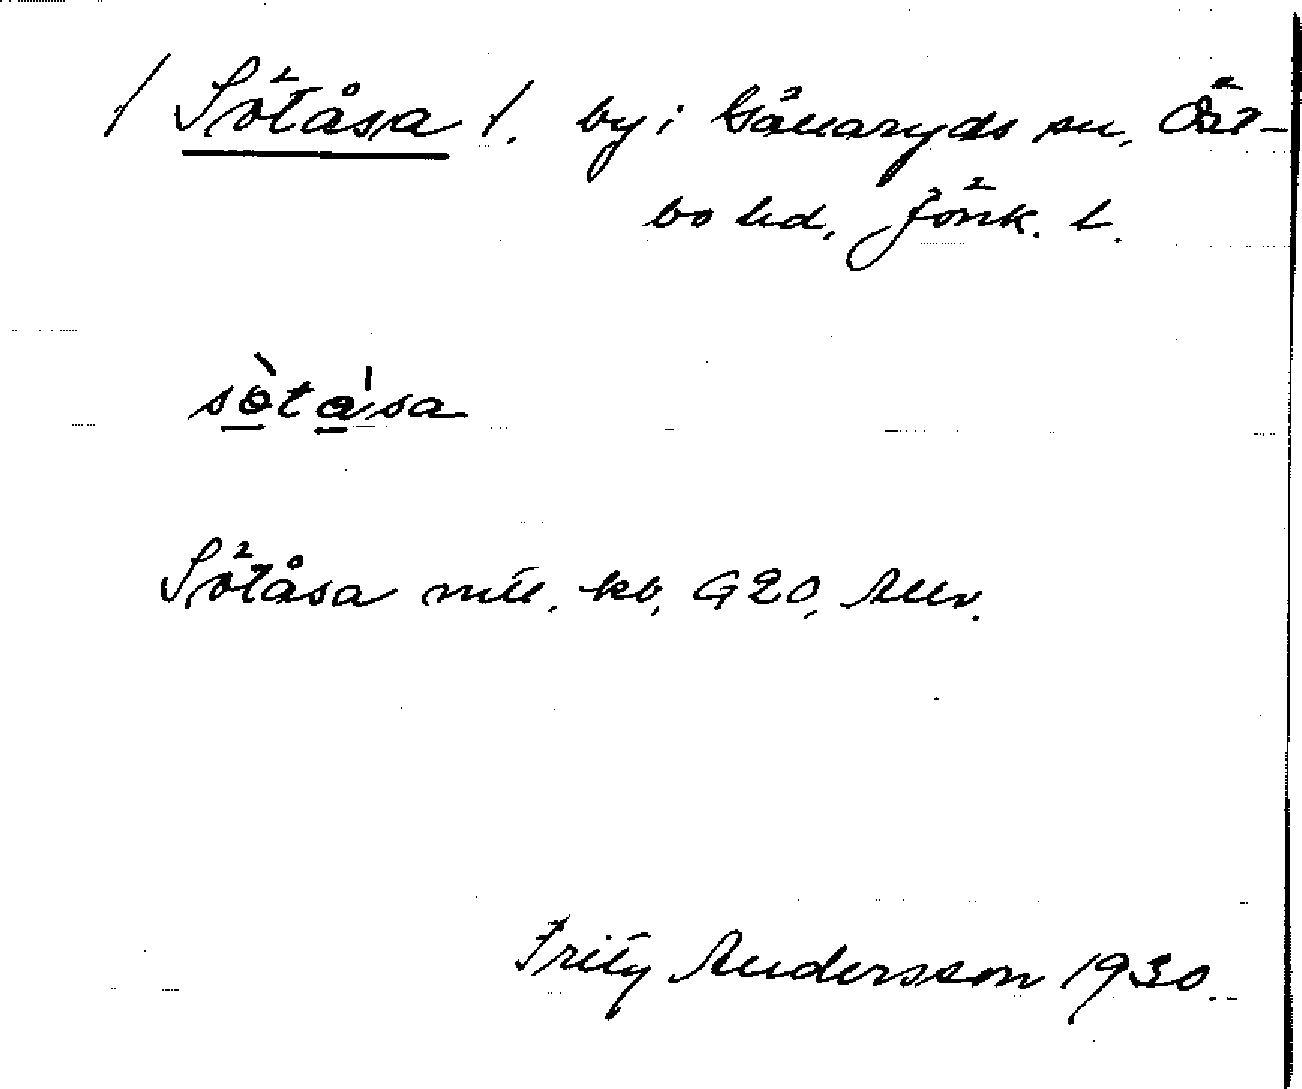 / Sötåsa /. by i Gåvaryds sn, Öst-
bo hd, Jönk. l.
sötåsa
Sötåsa mtl. kb, G20,
Fritz Andersson 1930.